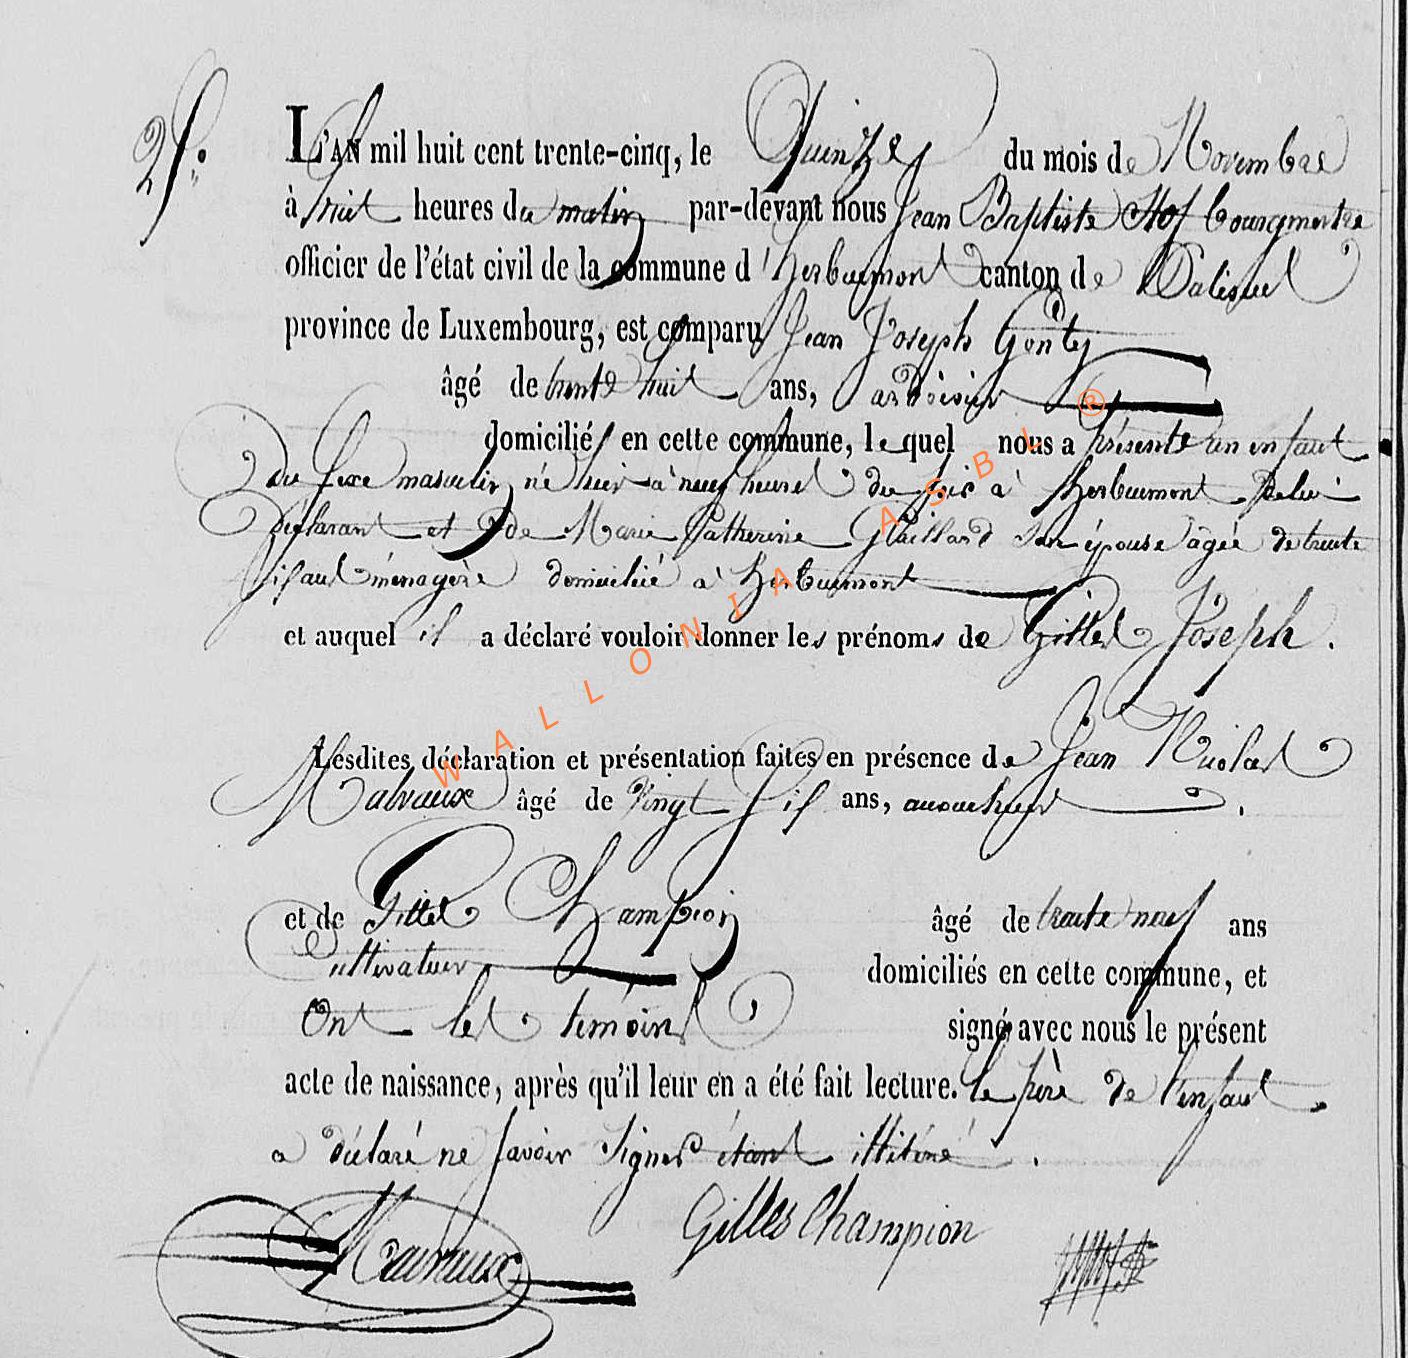 L'AN mil huit cent trente-cinq, le Quinze du mois de Novembre
à huit heures du matin par-devant nous Jean Baptiste bourgmestre
officier de l'état civil de la commune d'herbeumont canton de Paliseul
province de Luxembourg, est comparu Jean Joseph Gonty
âgé de trente huit ans, ardoisier
domicilié en cette commune, lequel nous a présenté un enfant
du sexe masculin né hier à neuf heures du soir à herbeumont de lui
déclarant et de Marie Catherine Gaillard son épouse agée de trente
six ans ménagère domiciliée à herbeumont
et auquel il a déclaré vouloir donner les prénoms de Gilles Joseph.
Lesdites déclaration et présentation faites en présence de Jean Nicolas
Malvaux âgé de vingt six ans,
et de Gilles Champion âgé de trente neuf ans
cultivateur domiciliés en cette commune, et
Ont les témoins signé avec nous le présent
acte de naissance, après qu'il leur en a été fait lecture. le père de l'enfant
a déclaré ne savoir signer étant illitéré.
Gilles Champion
WALLONIA ASBL ®